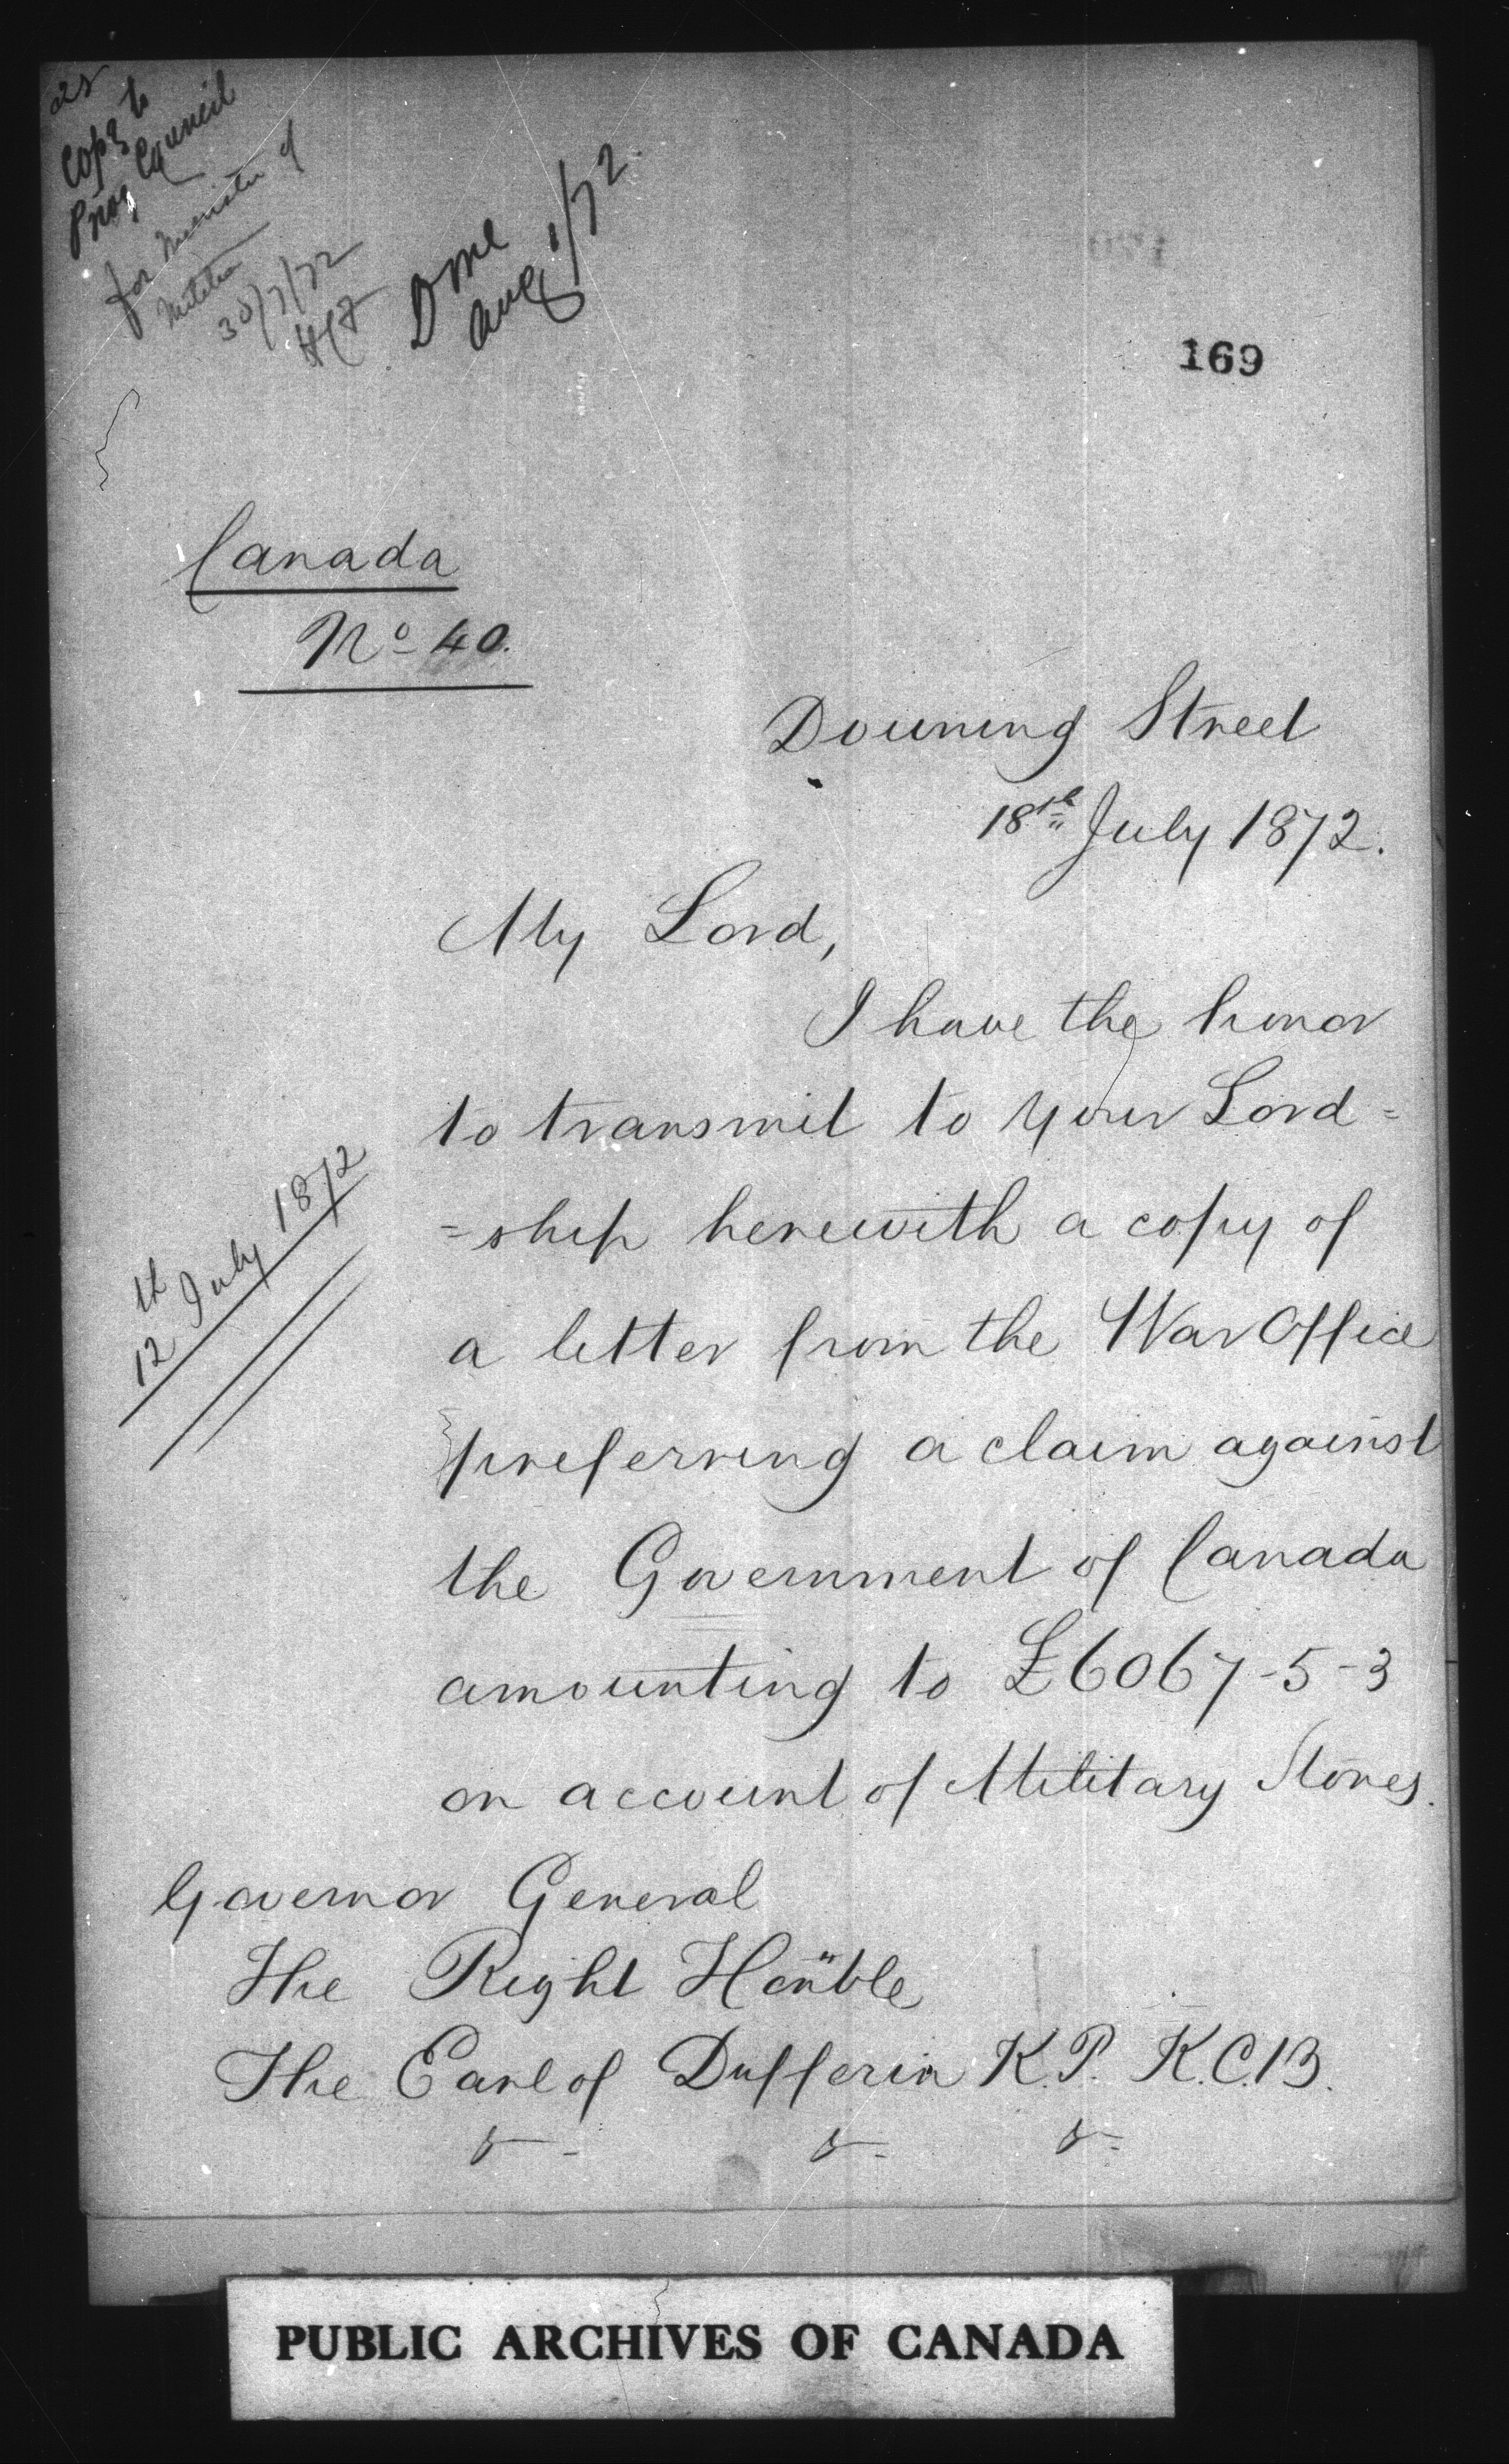 Copy to
Privy Council
for Minister of
Militia
30/7/72
Done
Aug 1/72
169
Canada
No 40.
Downing Street
18th July 1872.
My Lord,
I have the honor
to transmit to your Lord=
=ship herewith a copy of
12th July 1872
a letter from the War Office
preferring a claim against
the Government of Canada
amounting to £6067-5-3
on account of Military Stores.
Governor General
The Right Honble
The Earl of Dufferin K.P. K.C.B.
&- &- &-
PUBLIC ARCHIVES OF CANADA